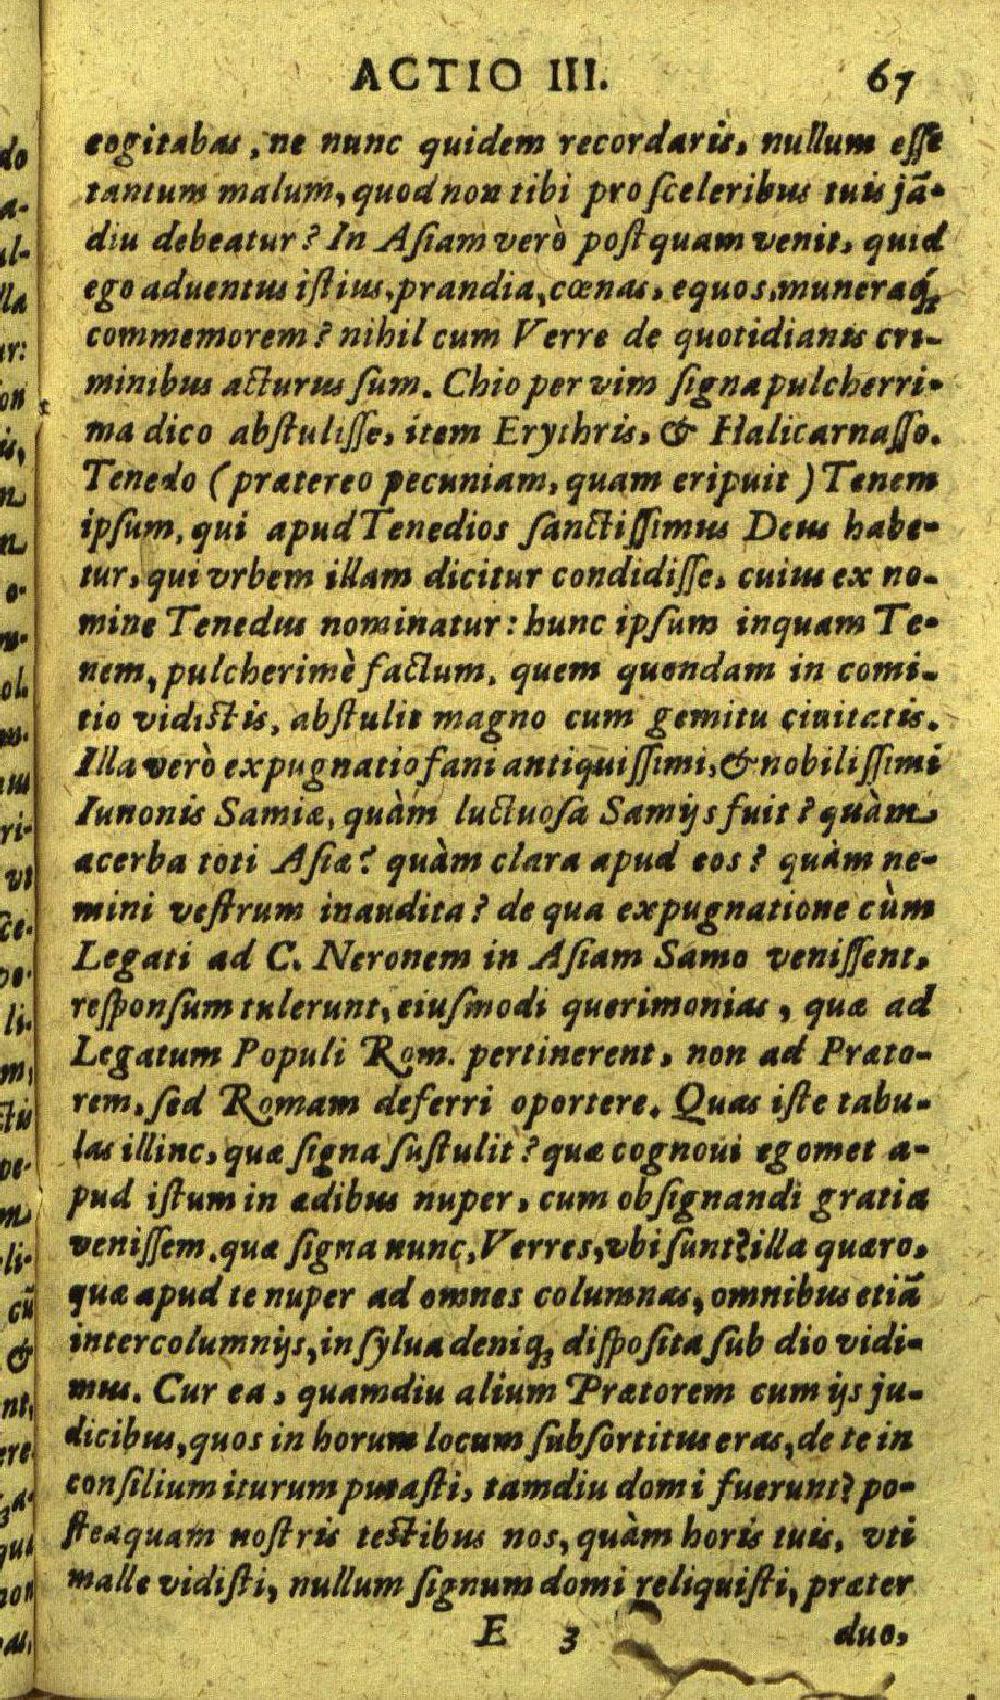 ACTIO III. 67
cogitabas, ne nunc quidem recordaris, nullum esse
tantum malum, quod non tibi pro sceleribus tuis jã-
diu debeatur? In Asiam verò postquam venit, quid
ego aduentus istius, prandia, cœnas, equos, muneraq́;
commemorem? nihil cum Verre de quotidianis cri-
minibus acturus sum. Chio per vim signa pulcherri-
ma dico abstulisse, item Erythris, & Halicarnasso.
Tenedo (prætereo pecuniam, quam eripuit) Tenem
ipsum, qui apud Tenedios sanctissimus Deus habe-
tur, qui vrbem illam dicitur condidisse, cuius ex no-
mine Tenedus nominatur: hunc ipsum inquam Te-
nem, pulcherimè factum, quem quondam in comi-
tio vidistis, abstulit magno cum gemitu ciuitatis.
Illa verò expugnatio fani antiquissimi, & nobilissimi
Iunonis Samiæ, quàm luctuosa Samijs fuit? quàm
acerba toti Asiæ? quàm clara apud eos? quàm ne-
mini vestrum inaudita? de qua expugnatione cùm
Legati ad C. Neronem in Asiam Samo venissent,
responsum tulerunt, eiusmodi querimonias, quæ ad
Legatum Populi Rom. pertinerent, non ad Præto-
rem, sed Romam deferri oportere. Quas iste tabu-
las illinc, quæ signa sustulit? quæ cognoui egomet a-
pud istum in ædibus nuper, cum obsignandi gratia
venissem. quæ signa nunc, Verres, vbi sunt? illa quæro,
quæ apud te nuper ad omnes columnas, omnibus etiã
intercolumnijs, in sylua deniq; disposita sub dio vidi-
mus. Cur ea, quamdiu alium Prætorem cum ijs ju-
dicibus, quos in horum locum subsortitus eras, de te in
consilium iturum putasti, tamdiu domi fuerunt? po-
steaquam nostris testibus nos, quàm horis tuis, vti
malle vidisti, nullum signum domi reliquisti, præter
E 3 duo,